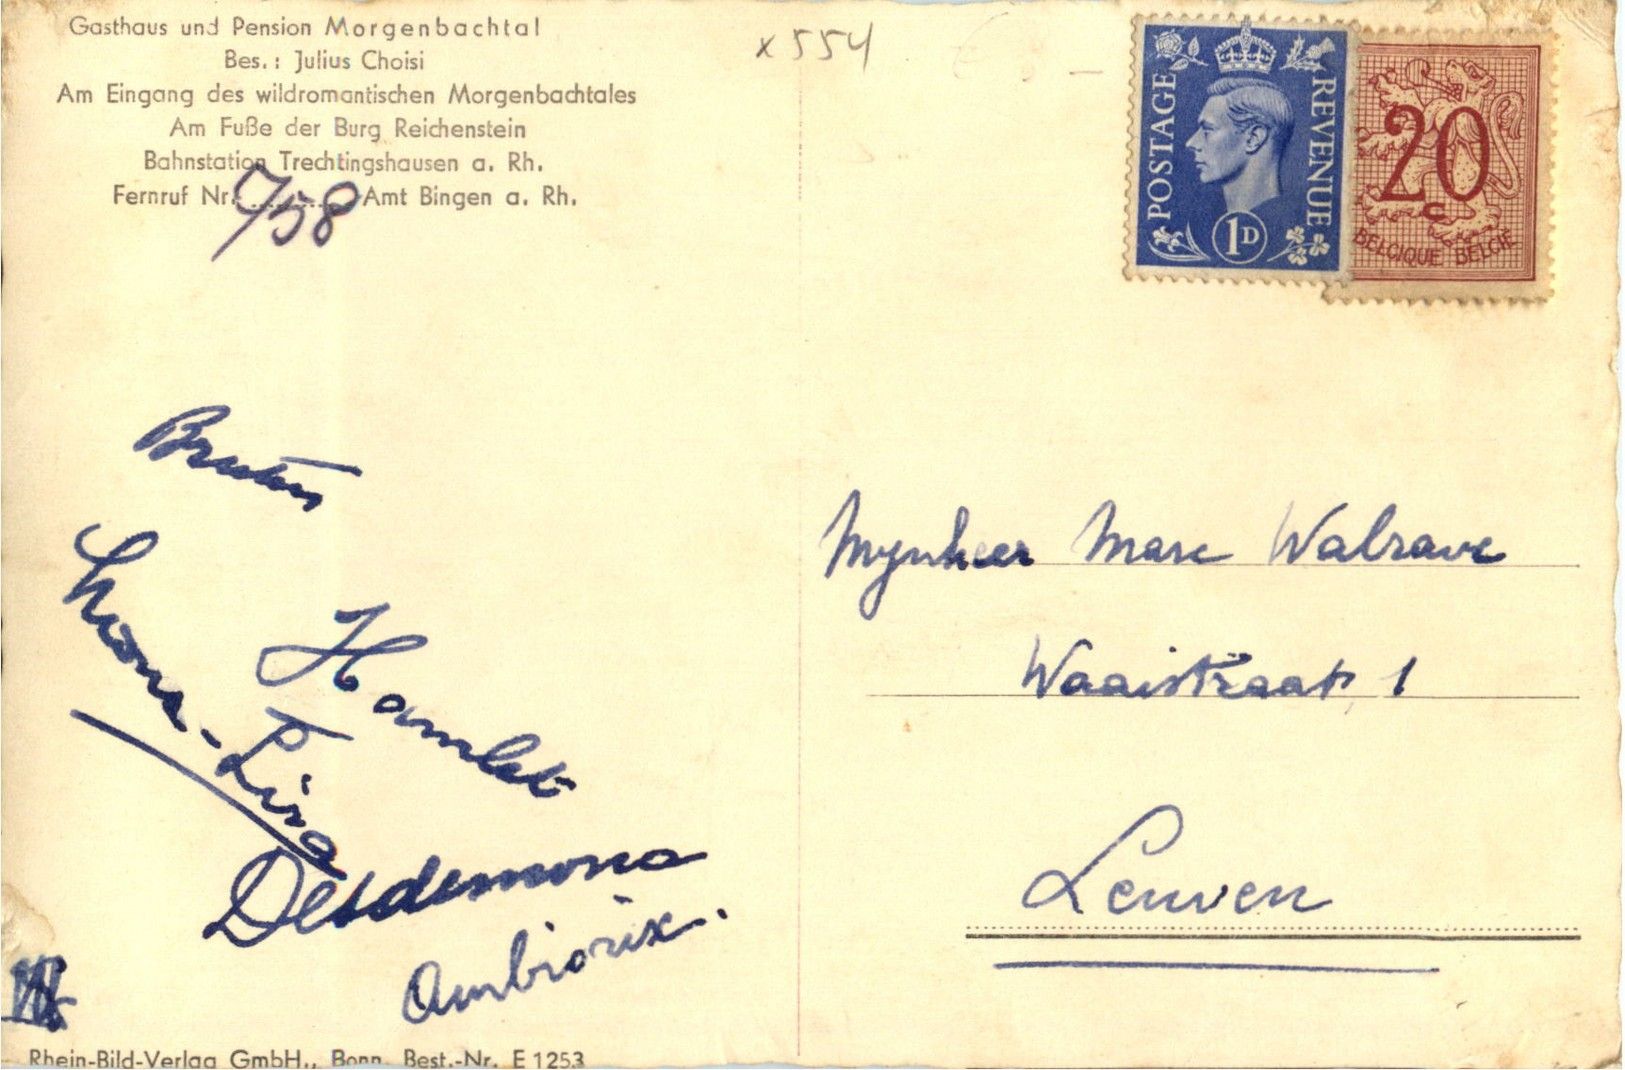 Gasthaus und Pension Morgenbachtal
Bes.: Julius Choisi
Am Eingang des wildromantischen Morgenbachtales
Am Fuße der Burg Reichenstein
Bahnstation Trechtingshausen a. Rh.
Fernruf Nr. 758 Amt Bingen a. Rh.
x554
POSTAGE
REVENUE
1D
20
c
BELGIQUE BELGIË
Brutus
Mona-Lisa
Hamlet
Desdemona
Ambiorix.
Mynheer Marc Walrave
Waaistraat, 1
Leuven
Rhein-Bild-Verlag GmbH., Bonn Best.-Nr. E 1253